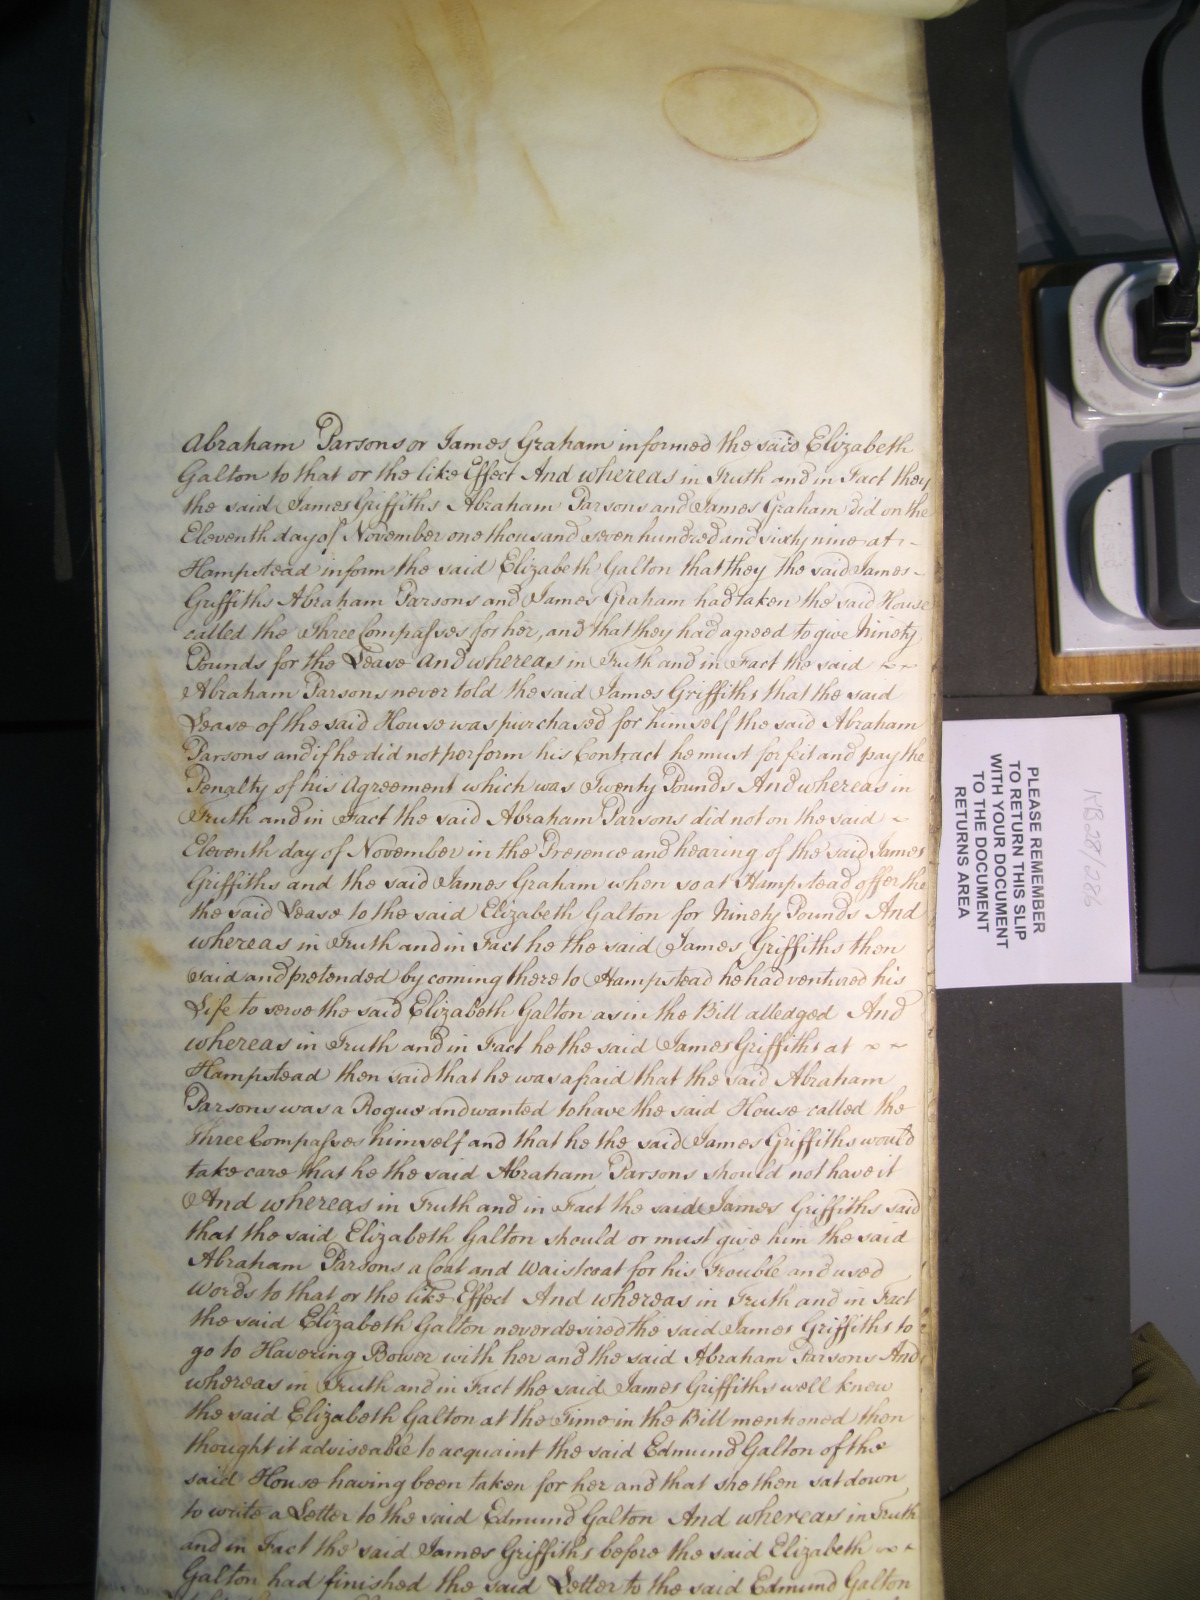 Abraham Parsons or James Graham informed the said Elizabeth
Galton to that or the like Effect And whereas in Truth and in Fact they
the said James Griffiths Abraham Parsons and James Graham did on the
Eleventh day of November one thousand seven hundred and sixty nine at -
Hampstead inform the said Elizabeth Galton that they the said James -
Griffiths Abraham Parsons and James Graham had taken the said House
called the Three Compasses for her, and that they had agreed to give Ninety
Pounds for the Lease And whereas in Truth and in Fact the said ~ ~
Abraham Parsons never told the said James Griffiths that the said
Lease of the said House was purchased for himself the said Abraham
Parsons and if he did not perform his Contract he must forfeit and pay the
Penalty of his Agreement which was Twenty Pounds And whereas in
Truth and in Fact the said Abraham Parsons did not on the said ~
Eleventh day of November in the Presence and hearing of the said James
Griffiths and the said James Graham when so at Hampstead offer the
the said Lease to the said Elizabeth Galton for Ninety Pounds And
whereas in Truth and in Fact he the said James Griffiths then
said and pretended by coming there to Hampstead he had ventured his
Life to serve the said Elizabeth Galton as in the Bill alledged And
whereas in Truth and in Fact he the said James Griffiths at ~ ~
Hampstead then said that he was afraid that the said Abraham
Parsons was a Rogue and wanted to have the said House called the
Three Compasses himself and that he the said James Griffiths would
take care that he the said Abraham Parsons should not have it
And whereas in Truth and in Fact the said James Griffiths said
that the said Elizabeth Galton should or must give him the said
Abraham Parsons a Coat and Waistcoat for his Trouble and used
words to that or the like Effect And whereas in Truth and in Fact
the said Elizabeth Galton never desired the said James Griffiths to
go to Havering Bower with her and the said Abraham Parsons And
whereas in Truth and in Fact the said James Griffiths well knew
the said Elizabeth Galton at the Time in the Bill mentioned then
thought it adviseable to acquaint the said Edmund Galton of the
said House having been taken for her and that she then sat down
to write a Letter to the said Edmund Galton And whereas in Truth
and in Fact the said James Griffiths before the said Elizabeth ~ ~
Galton had finished the said Letter to the said Edmund Galton
PLEASE REMEMBER
TO RETURN THIS SLIP
WITH YOUR DOCUMENT
TO THE DOCUMENT
RETURNS AREA
KB28/286